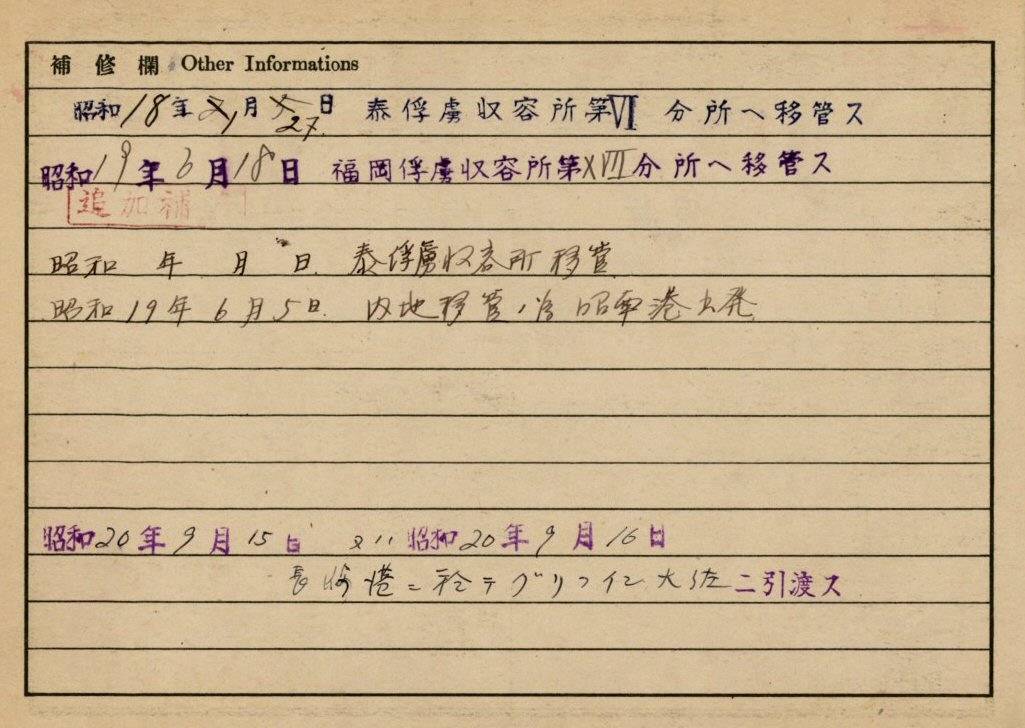 補修欄 Other Informations
昭和18年 1月 27日 泰俘虜収容所第VI分所ヘ移管ス
昭和19年6月18日 福岡俘虜収容所第XVII分所ヘ移管ス
追加補
昭和 年 月 日 泰俘虜収容所移管
昭和19年6月5日 内地移管ノ為昭南港出発
昭和20年9月15日 又ハ昭和20年9月16日
長崎港ニ於テグリフィン大佐ニ引渡ス